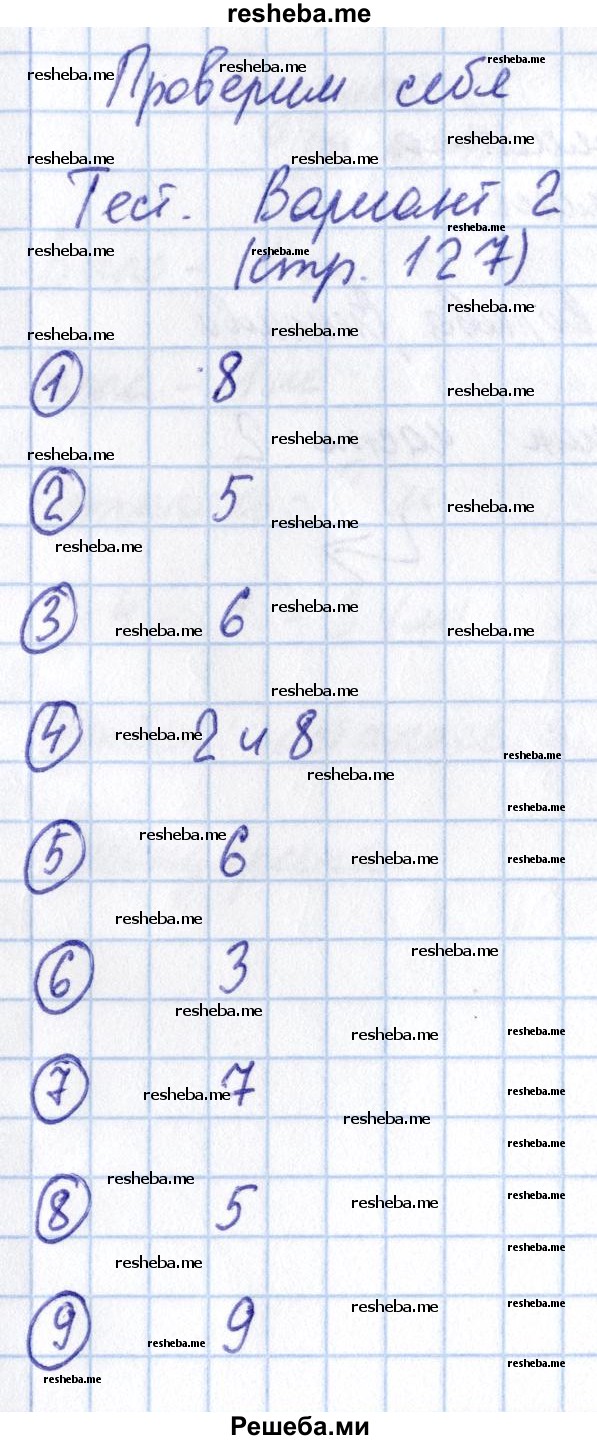 resheba.me
Проверим себя
Тест. Вариант 2
(стр. 127)
1 8
2 5
3 6
4 2 и 8
5 6
6 3
7 7
8 5
9 9
Решеба.ми